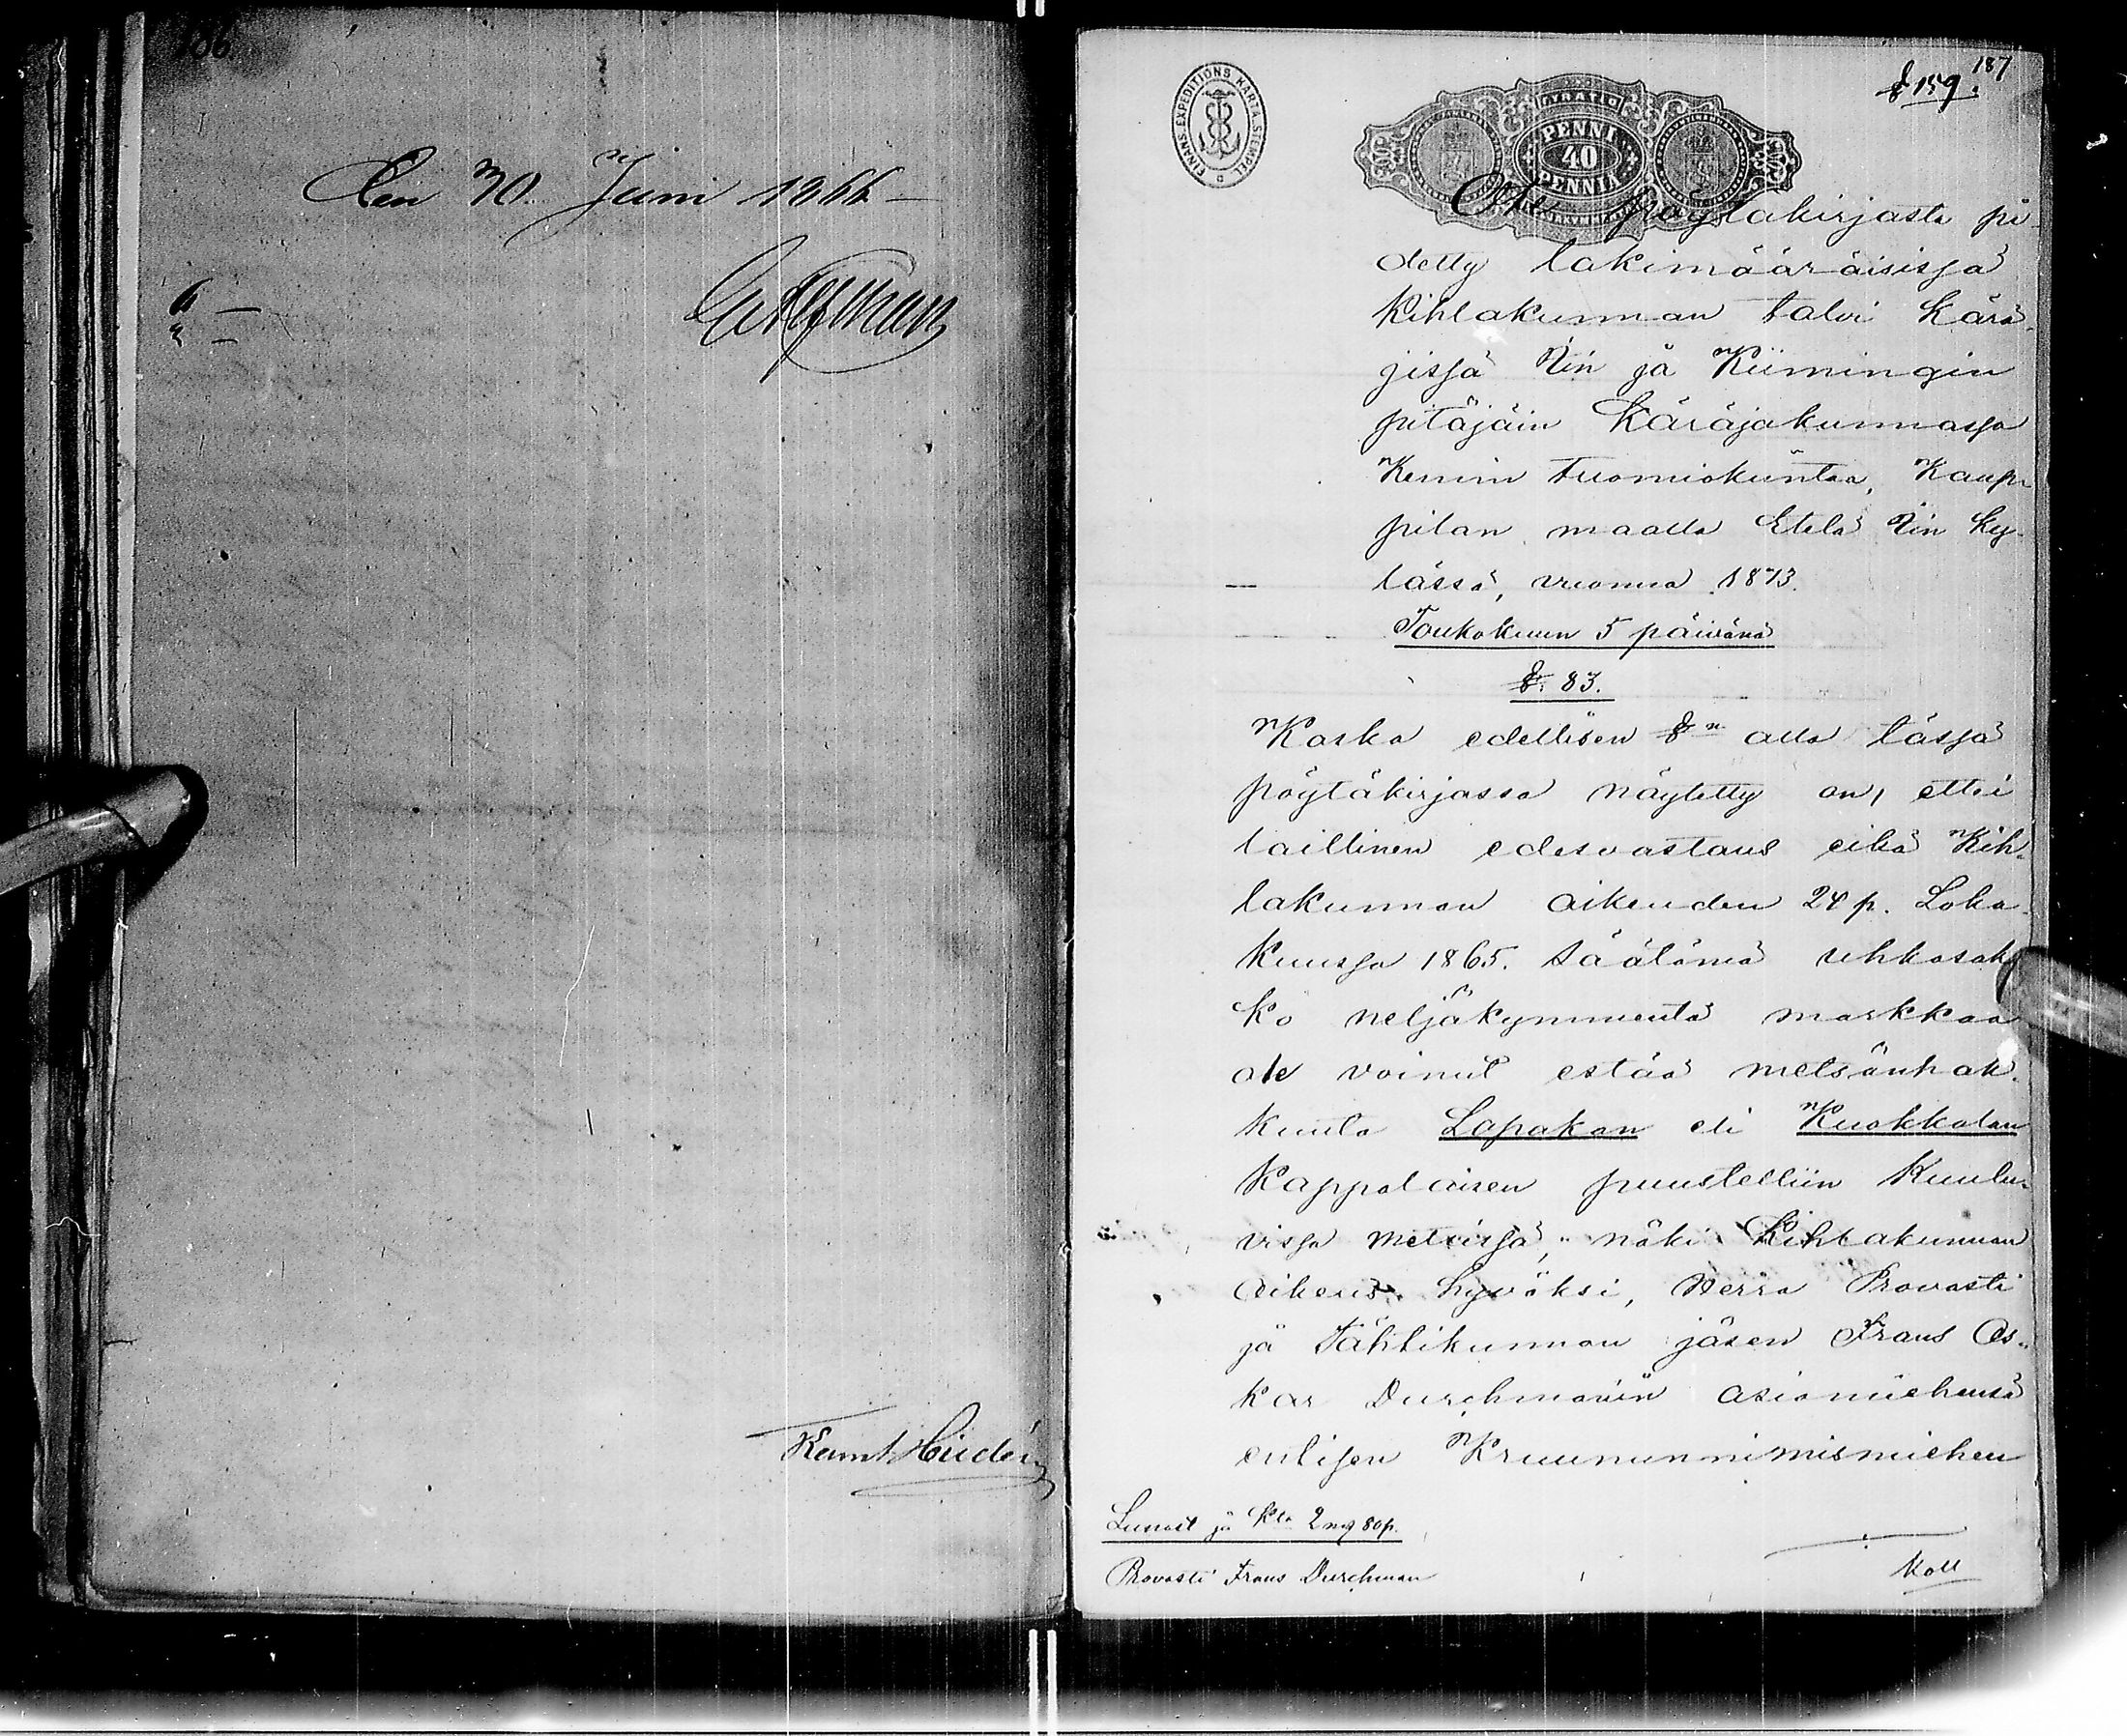 186.
Den 30. Juni 1866
187
§ 159.
FINANS-EXPEDITIONS KARTA STEMPEL
PENNI
40
PENNIÄ
Ote pöytäkirjasta pi-
detty lakimääräisissä
Kihlakunnan talvi Kärä-
jissä Iin ja Kiimingin
pitäjäin Käräjäkunnassa
Kemin tuomiokuntaa, Kaup-
pilan maalla Etelä Iin ky-
lässä, vuonna 1873.
Toukokuun 5 päivänä
§. 83.
Koska edellisen §n alla tässä
pöytäkirjassa näytetty on, ettei
laillinen edesvastaus eikä Kih-
lakunnan oikeuden 24 p. Loka-
kuussa 1865. säätämä uhkasak-
ko neljäkymmentä markkaa
ole voinut estää metsänhak-
kuuta Lapakan eli Kuokkalan
Kappalaisen puustelliin Kuulu-
vissa metsissä, näki Kihlakunnan
Oikeus hyväksi, Herra Provasti
ja Tähtikunnan jäsen Frans Os-
kar Durchmanin asiamiehensä
entisen Kruununnimismiehen
Lunast ja Kta 2 mg 80 p.
Provasti Frans Durchman
Koll